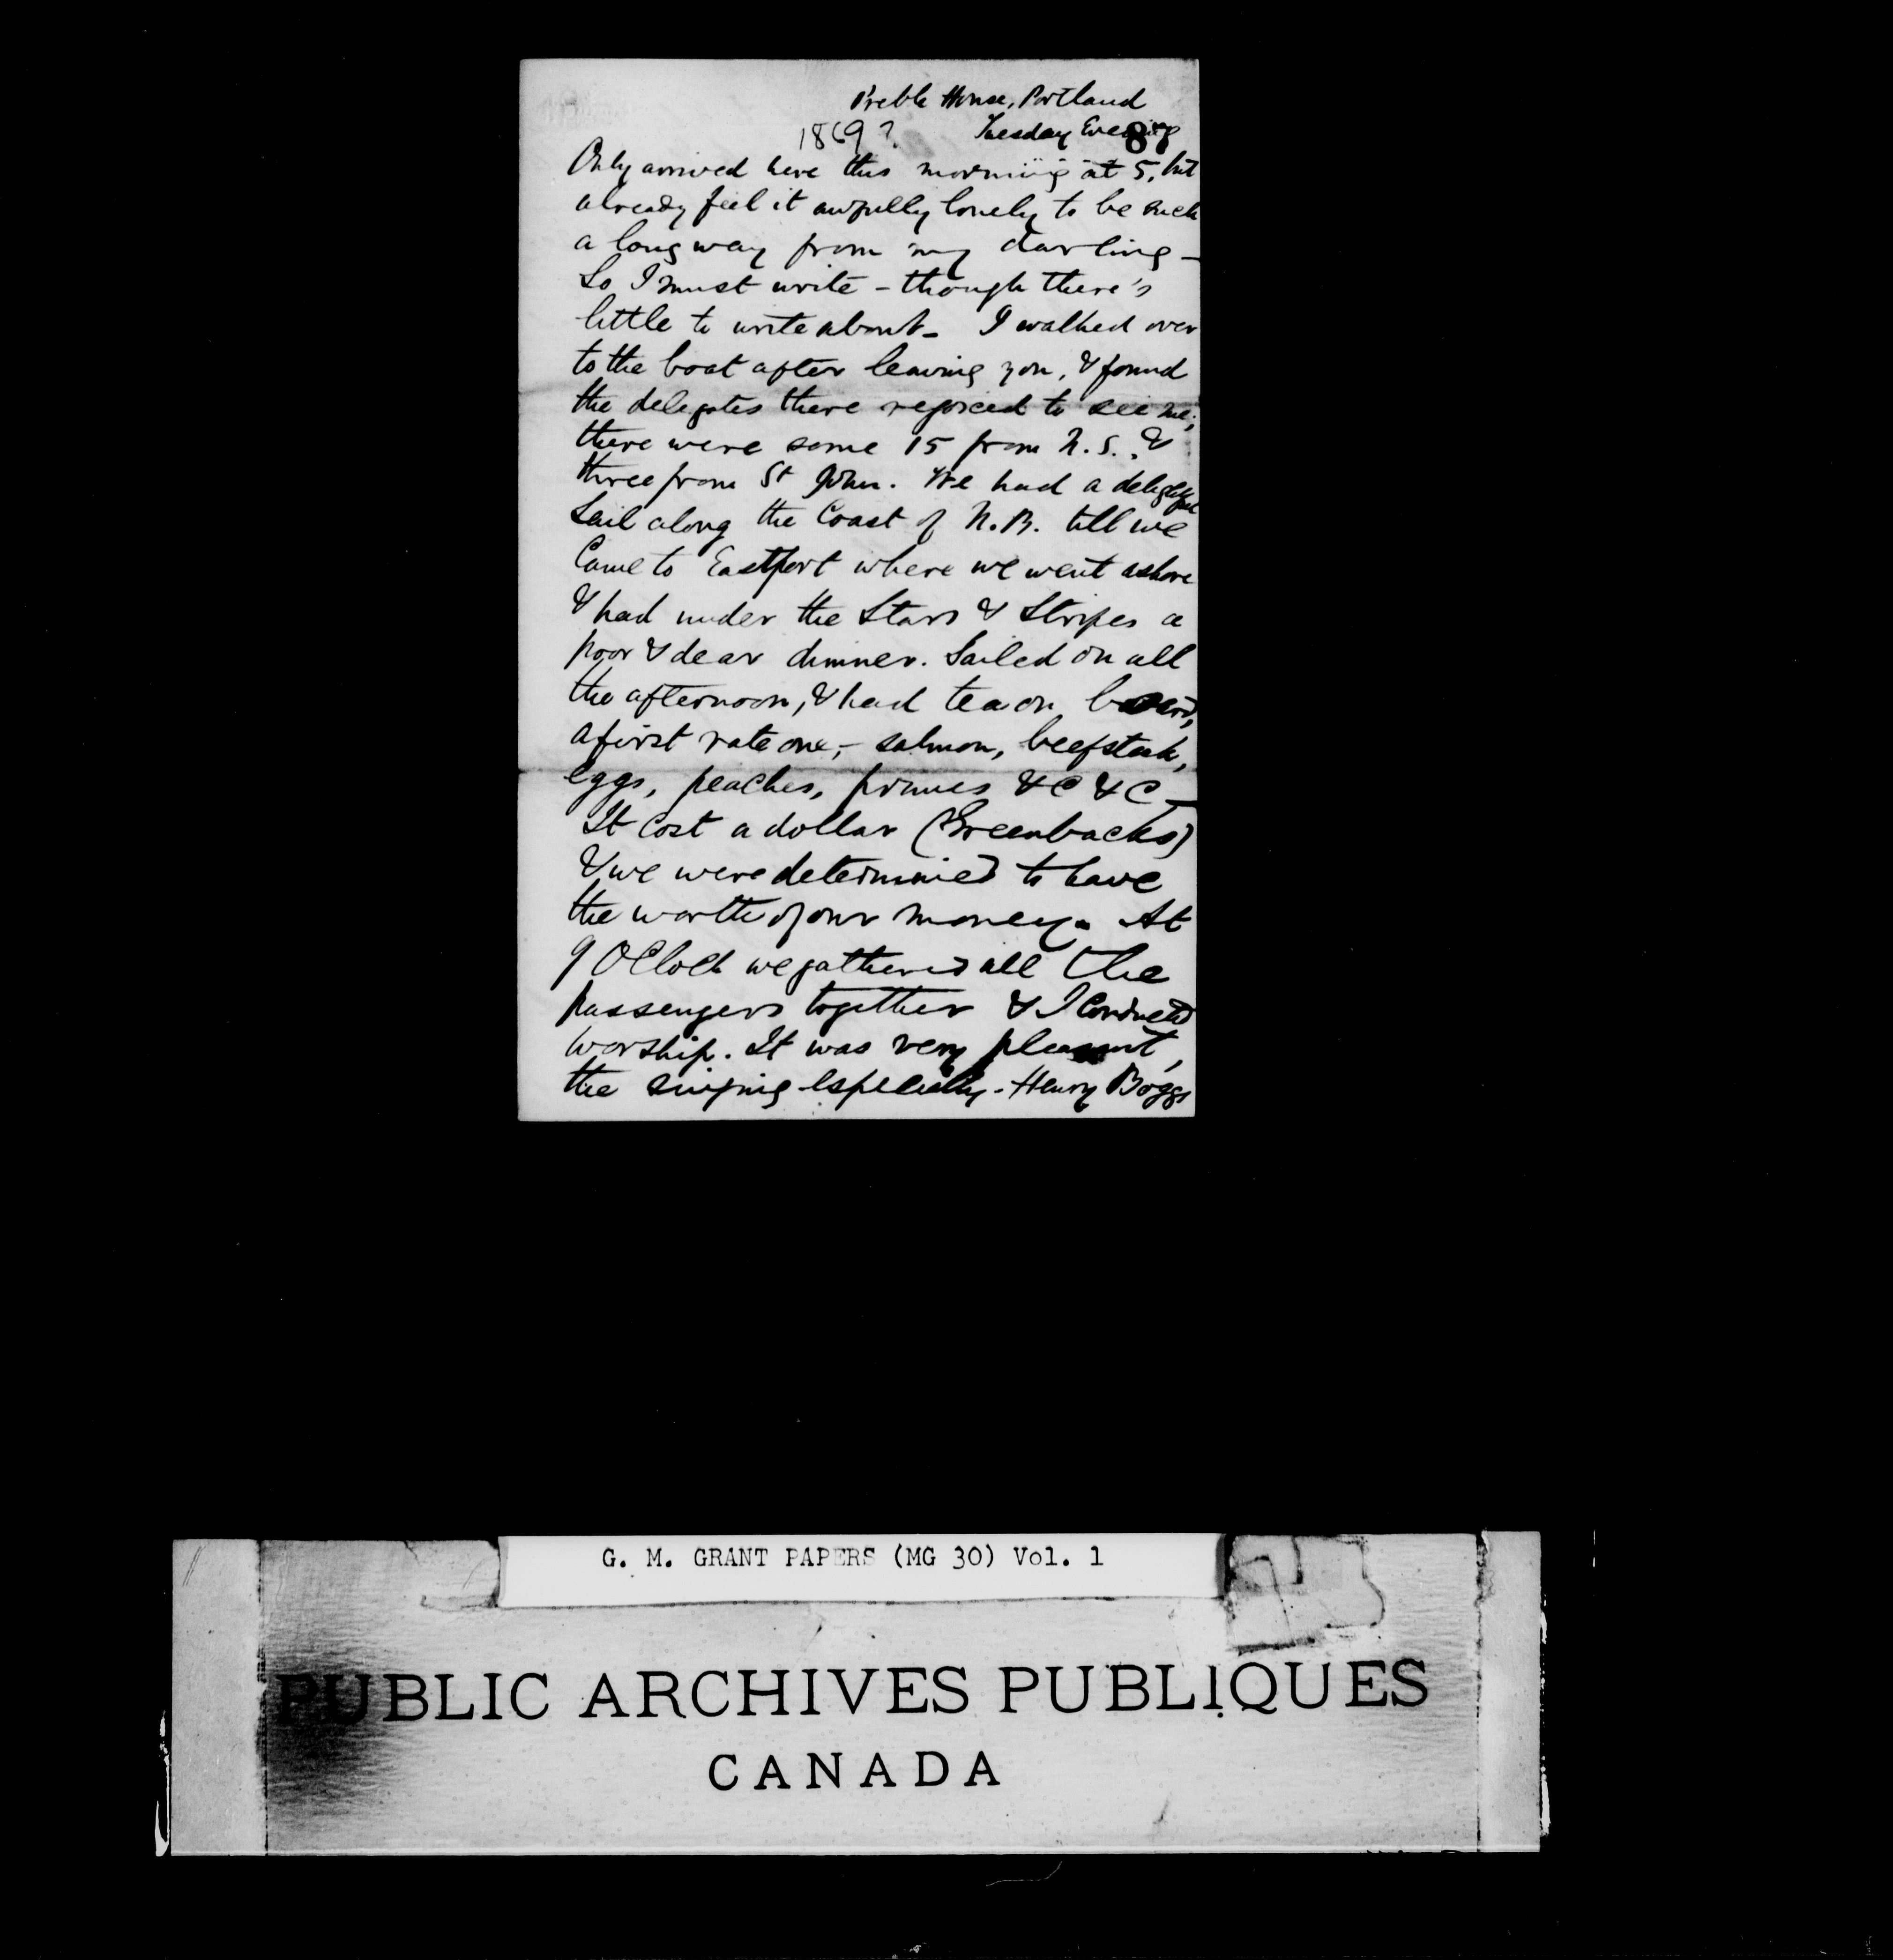 Preble House, Portland
1869? Tuesday Evening
87
Only arrived here this morning at 5, but
already feel it awfully lonely to be such
a long way from my darling –
So I must write – though there's
little to write about – I walked over
to the boat after leaving you, & found
the delegates there rejoiced to see me;
there were some 15 from N.S., &
three from St John. We had a delightful
sail along the Coast of N.B. till we
Came to Eastport where we went ashore
& had under the Stars & Stripes a
poor & dear dinner. Sailed on all
the afternoon, & had tea on board,
a first rate one, – salmon, beefsteak,
eggs, peaches, prunes &c &c –
It Cost a dollar (Greenbacks)
& we were determined to have
the worth of our money. At
9 OClock we gathered all the
passengers together & I Conducted
worship. It was very pleasant,
the singing especially – Henry Boggs
G. M. GRANT PAPERS (MG 30) Vol. 1
PUBLIC ARCHIVES PUBLIQUES
CANADA